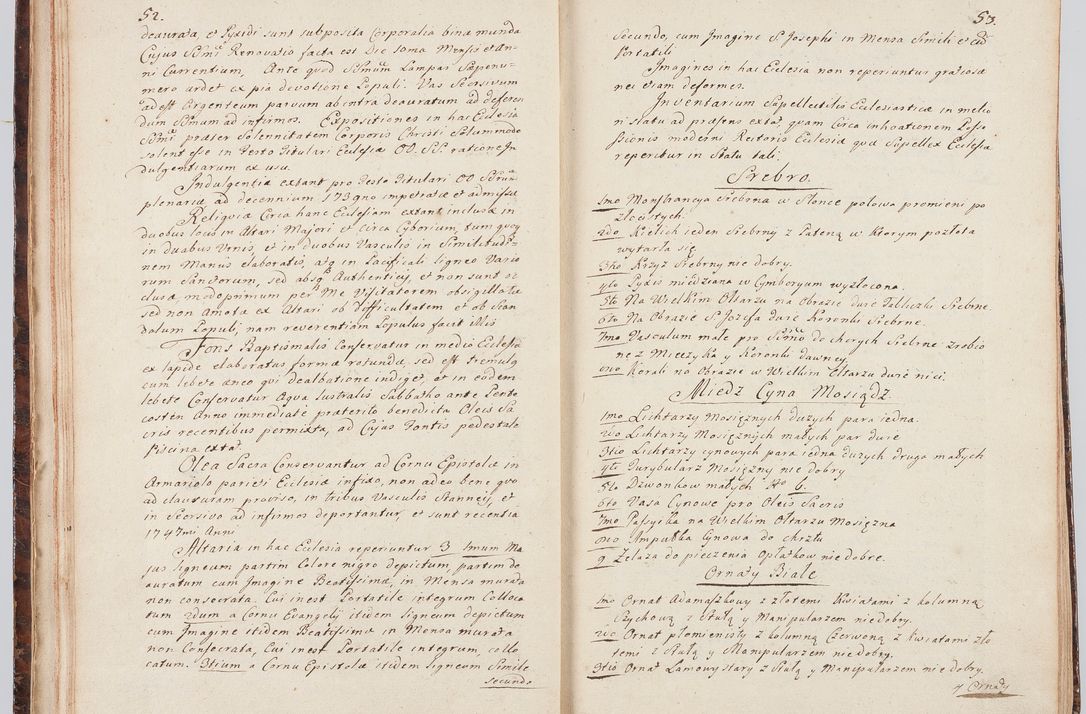 52.
deaurata, et Pyxidi sunt subposita Corporalia bina munda
Cujus SSmi Renovatio facta est Die 10ma Mensis et An-
ni Currentium, Ante quod SSmum Lampas Sæpenu-
mero ardet ex pia devotione Populi. Vas Seorsivum
adest Argenteum parvum ab intra deauratum ad deferen
dum SSmum ad infirmos. Expositiones in hac Eclesia
SSmi præter Solennitatem Corporis Christi Solummodo
solent esse in Festo Titulari Eclesiæ OO. SS. ratione In
dulgentiarum ex usu.
Indulgentiæ extant pro Festo Titulari OO SSrum
plenariæ ad decennium 1739no impetratæ et admissæ
Reliquiæ Circa hanc Eclesiam extant inclusæ in
duobus locis in Altari Majori et Circa Cyborium, tum quoq
in duabus Urnis, et in duobus Vasculis in Similitudi-
nem Manus elaboratis, atq in Pacificali ligneo Vario
rum Sanctorum, sed absq Authenticis, et non sunt oc
clusæ, modo primum per Me Visitatorem obsigillatæ
sed non Amotæ ex Altari ob difficultatem et ob Scan
dalum Populi, nam reverentiam Populus facit illis
Fons Baptismalis Conservatur in medio Eclesiæ
ex lapide elaboratus forma rotunda, sed est tremulq
cum lebete æneo qui dealbatione indiget, et in eodem
lebete Conservatur Aqua lustralis Sabbatho ante Pente
costen Anno immediate præterito benedicta Oleis Sa
cris recentibus permixta, ad Cujus Fontis pedestale
Piscina extat
Olea Sacra Conservantur ad Cornu Epistolæ in
Armariolo parieti Eclesiæ infixo, non adeo bene quo
ad clausuram proviso, in tribus Vasculis Stanneis, et
in Seorsivo ad infirmos deportantur, et sunt recentia
1747mi Anni
Altaria in hac Eclesia reperiuntur 3 1mum Ma
jus ligneum partim Colore nigro depictum, partim de
auratum cum Imagine Beatissimæ, in Mensa murata
non consecrata, Cui inest Portatile integrum Colloca
tum 2dum a Cornu Evangelij itidem ligneum depictum
cum Imagine itidem Beatissimæ in Mensa murata
non Consecrata, Cui inest Portatile integrum, collo
catum. 3tium a Cornu Epistolæ itidem ligneum Simile
secundo
53.
Secundo, cum Imagine S. Josephi in Mensa Simili et cũ
Portatili
Imagines in hac Eclesia non reperiuntur gratiosæ
nec etiam deformes.
Inventarium Supellectilis Eclesiasticæ in melio
ri statu ad præsens extat quam Circa inhoationem Posse
ssionis moderni Rectoris Eclesiæ quæ Supellex Eclesiæ
reperitur in Statu tali.
Srebro.
1mo Monstrancya Srebrna w Słońce połowa promieni po
złocistych.
2do Kielich ieden Srebrny z Pateną w Ktorym pozłota
wytarła się
3tio Krzyż Srebrny nie dobry.
4to Pyxis miedziana w Cymboryum wyzłocona.
5to Na Wielkim Ołtarzu na Obrazie dwie Tabliczki Srebrne.
6to Na Obrazie S. Jozefa dwie Koronki Srebrne.
7mo Vasculum małe pro SSimo do chorych Srebrne zrobio
ne z Mieczyka y Koronki dawney
8vo Korali na Obrazie w Wielkim Ołtarzu dwie nici.
Miedz Cyna Mosiądz.
1mo Lichtarzy Mosięznych duzych para iedna.
2do Lichtarzy Mosięznych małych par dwie
3tio Lichtarzy cynowych para iedna duzych druga małych
4to Turybularz Mosięzny nie dobry
5to Dzwonkow małych No 6.
6to Vasa Cynowe pro Oleis Sacris
7mo Passyika na Wielkim Ołtarzu Mosięzna
8vo Ampułka Cynowa do chrztu
9 Zelaza do pieczenia Opłatkow nie dobre.
Ornaty Białe
1mo Ornat Adamaszkowy z złotemi Kwiatami z kolumną
Pzychową z Stułą y Manipularzem nie dobry.
2do Ornat płomienisty z kolumną Czerwoną z Kwiatami zło
temi z Stułą y Manipularzem nie dobry.
3tio Ornat Lamowy stary z Stułą y Manipularzem nie dobry.
4 Ornaty